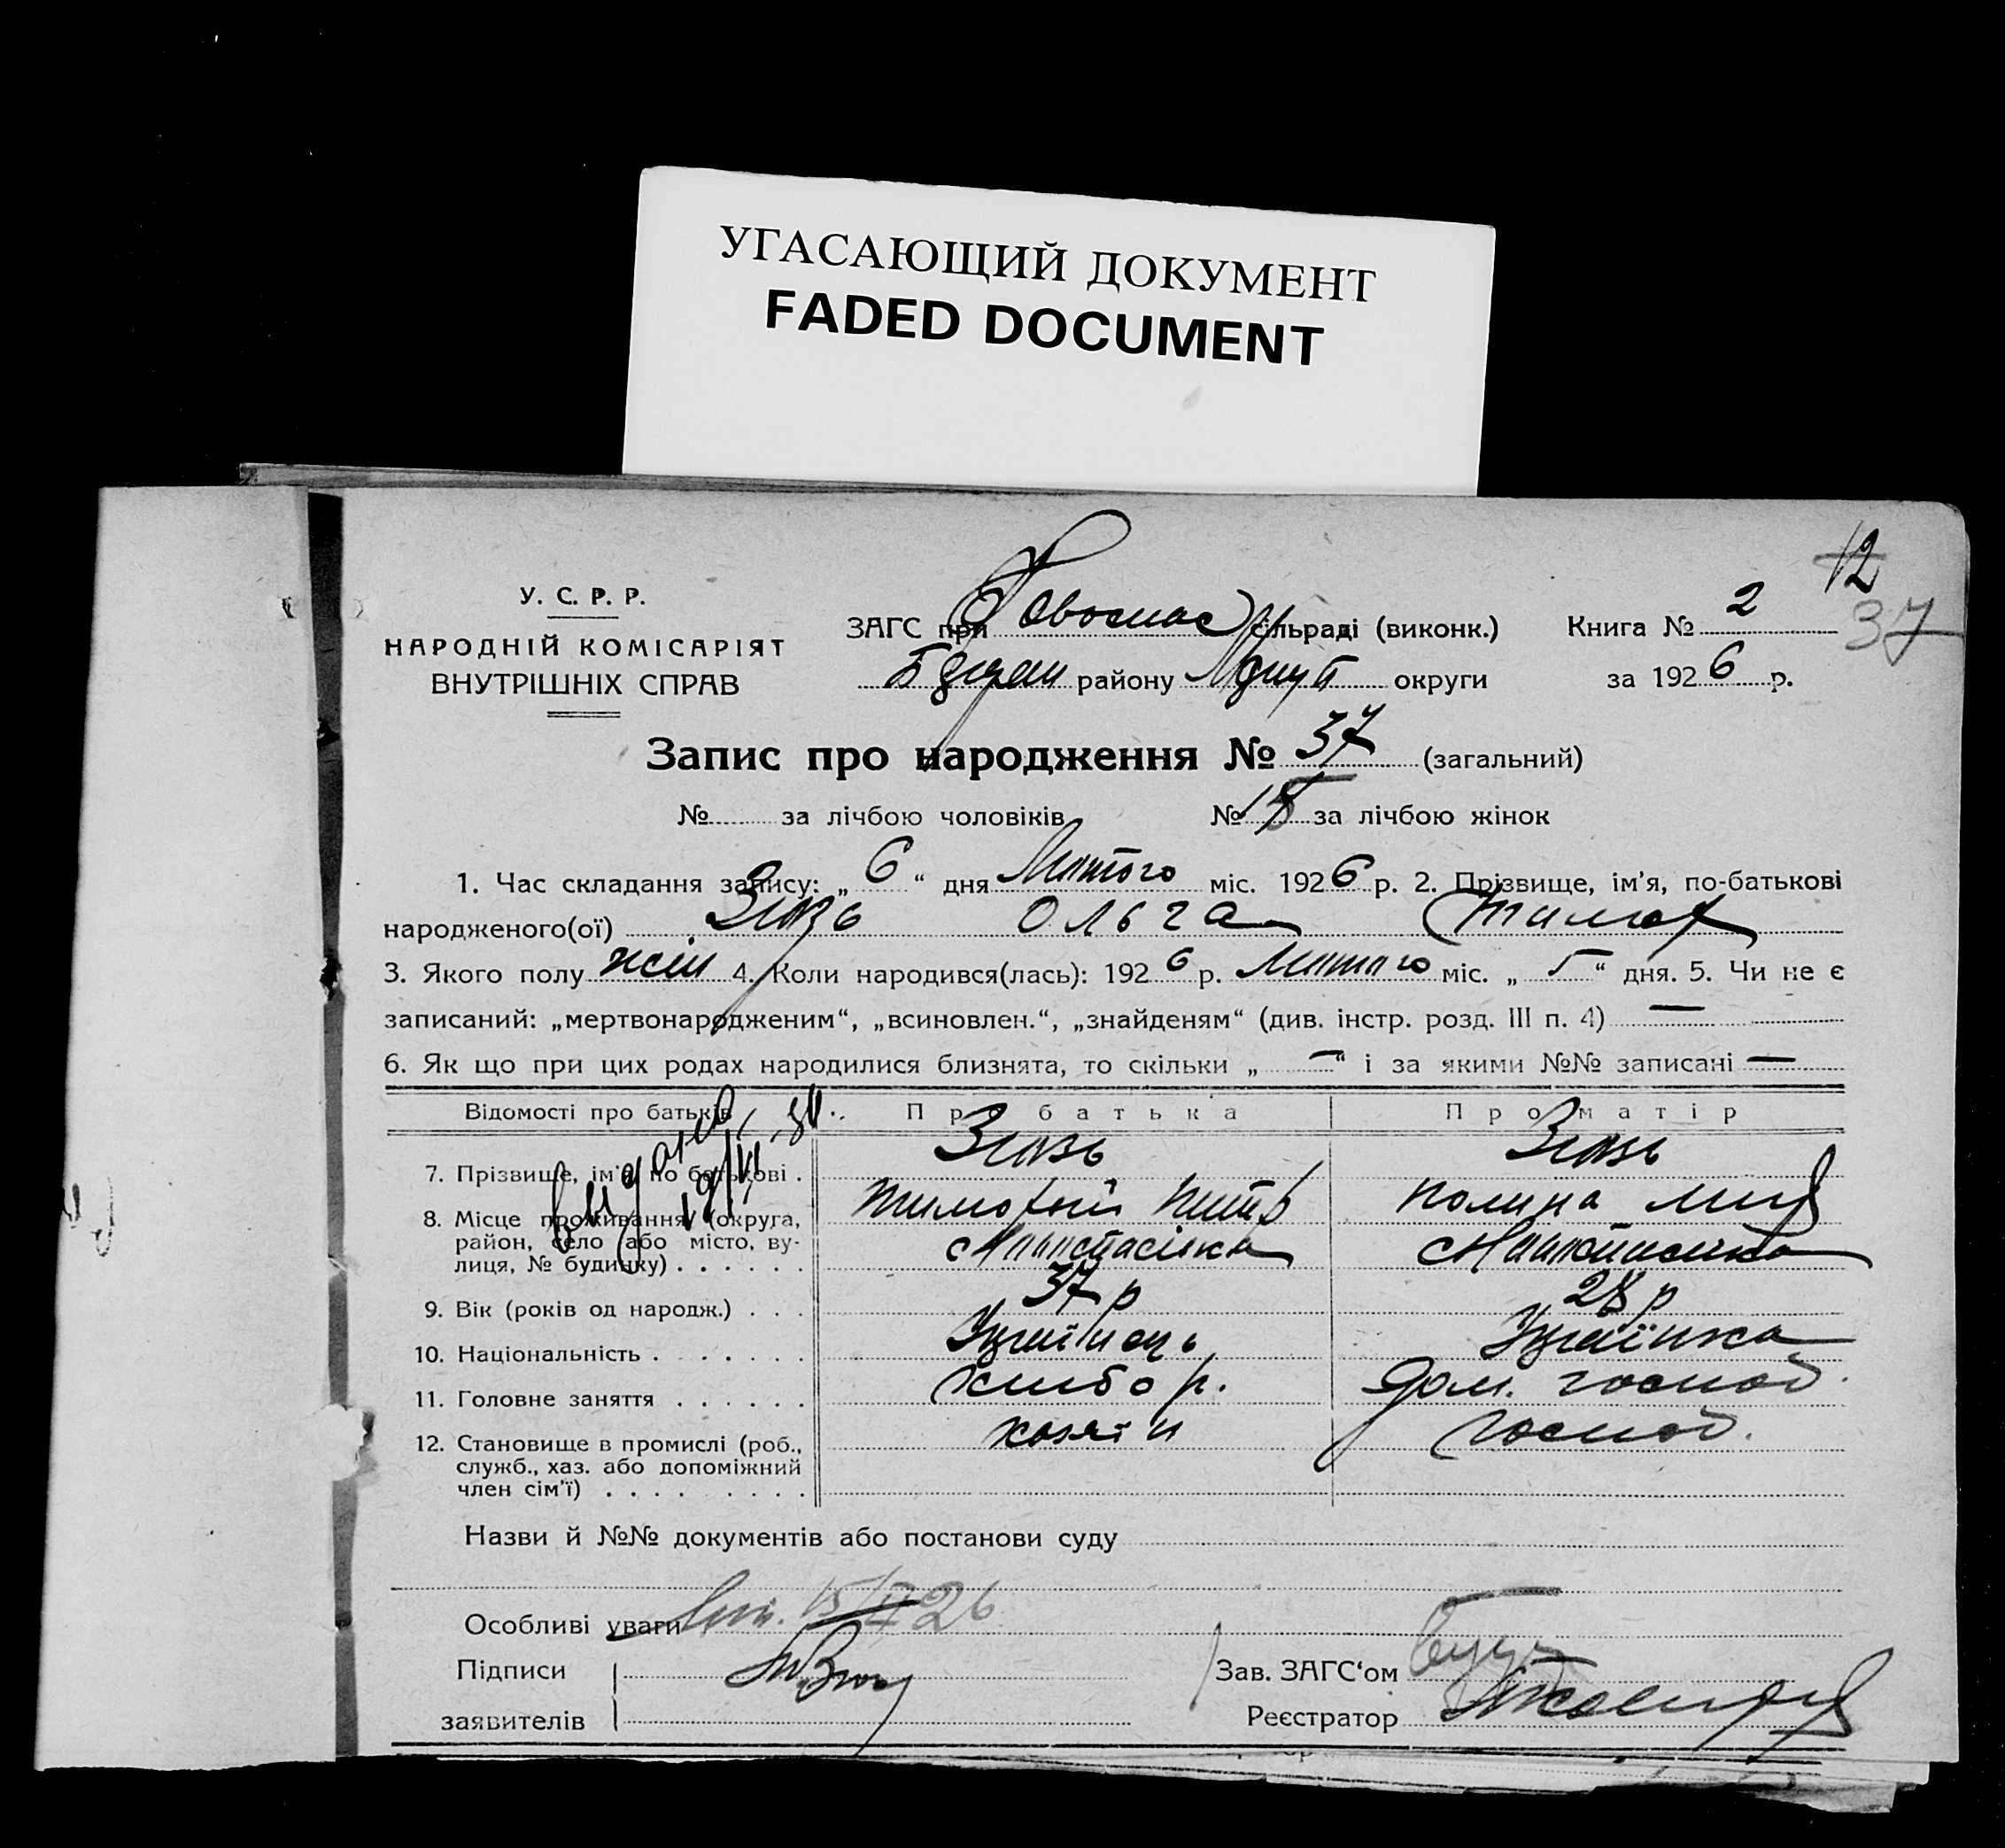 УГАСАЮЩИЙ ДОКУМЕНТ
FADED DOCUMENT
12
37
У. С. Р. Р.
НАРОДНІЙ КОМІСАРІЯТ
ВНУТРІШНІХ СПРАВ
ЗАГС при сільраді (виконк.)
Книга № 2
району округи
за 1926 р.
Запис про народження № 37 (загальний)
№ за лічбою чоловіків № 15 за лічбою жінок
1. Час складання запису: „ 6 “ дня Лютого міс. 1926 р. 2. Прізвище, ім’я, по-батькові
народженого(ої) Ольга Тимоф
3. Якого полу жін 4. Коли народився(лась): 1926 р. Лютого міс. „ 5 “ дня. 5. Чи не є
записаний: „мертвонародженим“, „всиновлен.“, „знайденям“ (див. інстр. розд. III п. 4) —
6. Як що при цих родах народилися близнята, то скільки „ — “ і за якими №№ записані —
Відомості про батьків
Про батька
Про матір
7. Прізвище, ім’я, по батькові .
Тимофій Петр
Полина
8. Місце проживання (округа,
район, село або місто, ву-
лиця, № будинку) . . . . . .
9. Вік (років од народж.) . . .
37 р
28 р
10. Національність . . . . . . .
Українець
Українка
11. Головне заняття . . . . . .
Хлібор.
Дом. господ.
12. Становище в промислі (роб.,
служб., хаз. або допоміжний
член сім’ї) . . . . . . . .
хазяїн
Господ.
Назви й №№ документів або постанови суду
Особливі уваги 15/II 26
Підписи
заявителів
Зав. ЗАГС‘ом
Реєстратор